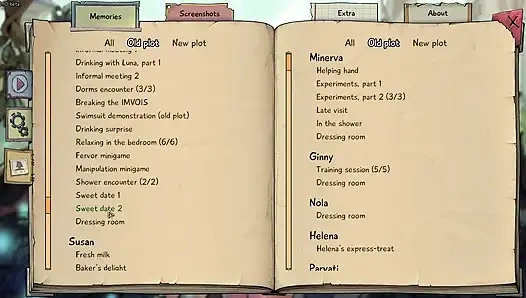 beta
Memories
Screenshots
Extra
About
All Old plot New plot
Informal meeting 1
Drinking with Luna, part 1
Informal meeting 2
Dorms encounter (3/3)
Breaking the IMVOIS
Swimsuit demonstration (old plot)
Drinking surprise
Relaxing in the bedroom (6/6)
Fervor minigame
Manipulation minigame
Shower encounter (2/2)
Sweet date 1
Sweet date 2
Dressing room
Susan
Fresh milk
Baker's delight
All Old plot New plot
Minerva
Helping hand
Experiments, part 1
Experiments, part 2 (3/3)
Late visit
In the shower
Dressing room
Ginny
Training session (5/5)
Dressing room
Nola
Dressing room
Helena
Helena's express-treat
Parvati